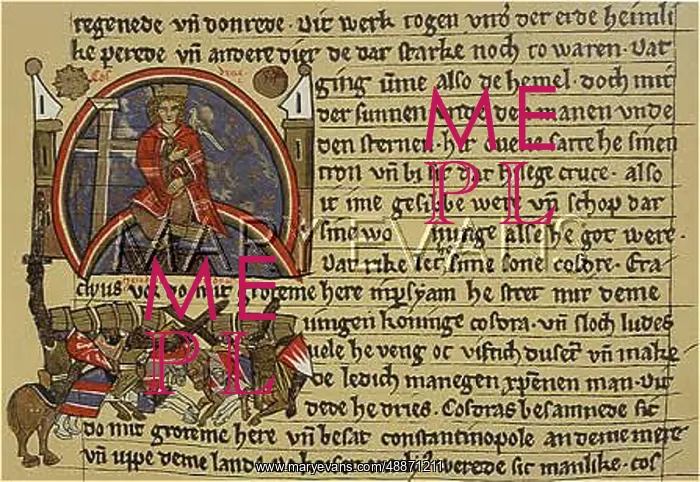 regenede vñ donrede. Dit werk togen vnd' der erde heimli
ke perede vñ andere dier de dar starke noch to waren. Dat
Cos
dras
ging vme also de hemel. doch mit
der sunnen vnde de manen vnde
den sternen. hir vuene satte he sinen
stol vñ bi sic dat hilege cruce. also
it ime gesibbe were vñ schop dat
sine wo nunge alse he got were.
Dat rike let sime sone cosdre. Era
clius vor do mit groteme here in psyam he stret mit deme
iungen koninge cosdra. vñ sloch ludes
uele he veng oc viftich dusent vñ make
de ledich manegen xpenen man. Dit
dede he dries. Cosdras besamnede sic
do mit groteme here vñ besat constantinopole an deme mere
vñ vppe deme lande werede sic manlike. cos
ME
PL
ME
PL
MARY EVANS
www.maryevans.com/48871211